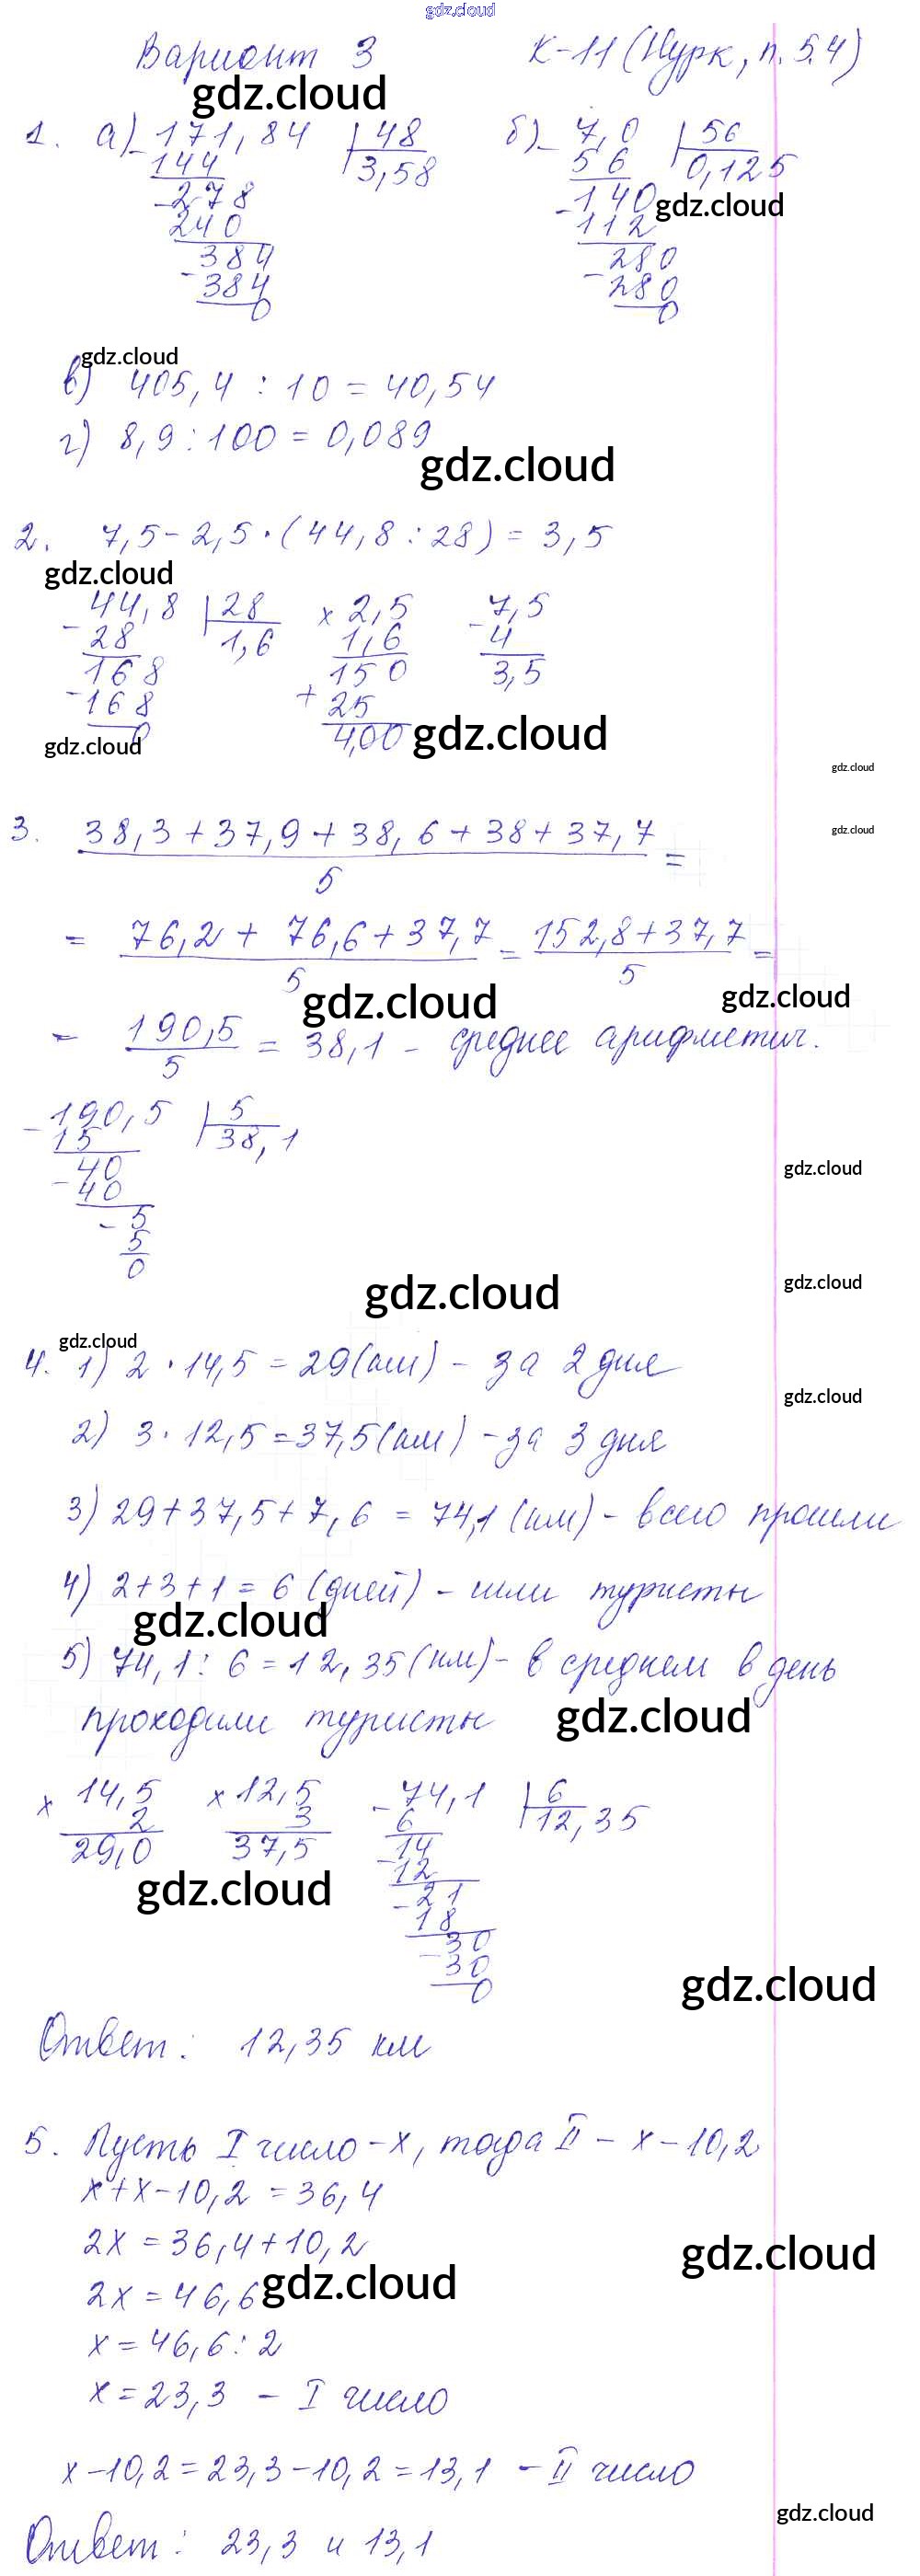 gdz.cloud
Вариант 3 К-11 (Нурк, п. 5.4)
gdz.cloud
1. а) 171,84 | 48
144 3,58
278
240
384
384
0
б) 7,0 | 56
56 0,125
140
112
280
280
0
gdz.cloud
gdz.cloud
в) 405,4 : 10 = 40,54
г) 8,9 : 100 = 0,089
gdz.cloud
2. 7,5 - 2,5 · (44,8 : 28) = 3,5
gdz.cloud
- 44,8 | 28
28 1,6
168
- 168
0
× 2,5
1,6
150
+ 25
4,00
- 7,5
4
3,5
gdz.cloud
gdz.cloud
gdz.cloud
3. 38,3 + 37,9 + 38,6 + 38 + 37,7 =
5
gdz.cloud
= 76,2 + 76,6 + 37,7 = 152,8 + 37,7 =
5 5
gdz.cloud
gdz.cloud
= 190,5 = 38,1 - среднее арифметич.
5
- 190,5 | 5
15 38,1
- 40
40
- 5
5
0
gdz.cloud
gdz.cloud
gdz.cloud
gdz.cloud
4. 1) 2 · 14,5 = 29 (км) - за 2 дня
gdz.cloud
2) 3 · 12,5 = 37,5 (км) - за 3 дня
3) 29 + 37,5 + 7,6 = 74,1 (км) - всего прошли
4) 2 + 3 + 1 = 6 (дней) - шли туристы
gdz.cloud
5) 74,1 : 6 = 12,35 (км) - в среднем в день
проходили туристы
gdz.cloud
× 14,5
2
29,0
× 12,5
3
37,5
- 74,1 | 6
6 12,35
14
- 12
- 21
18
- 30
30
0
gdz.cloud
gdz.cloud
Ответ: 12,35 км
5. Пусть I число - x, тогда II - x - 10,2
x + x - 10,2 = 36,4
2x = 36,4 + 10,2
gdz.cloud
2x = 46,6
gdz.cloud
x = 46,6 : 2
x = 23,3 - I число
x - 10,2 = 23,3 - 10,2 = 13,1 - II число
gdz.cloud
Ответ: 23,3 и 13,1